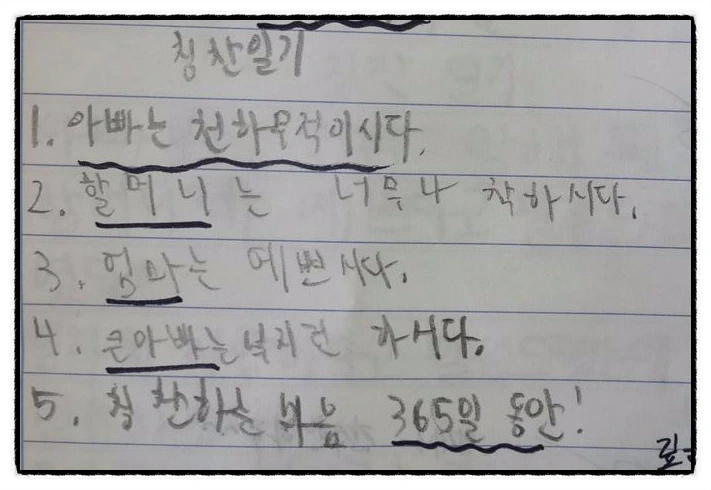 칭찬일기
1. 아빠는 천하무적이시다.
2. 할머니는 너무나 착하시다.
3. 엄마는 예쁘시다.
4. 큰아빠는 하시다.
5. 칭찬하는 마음 365일 동안!